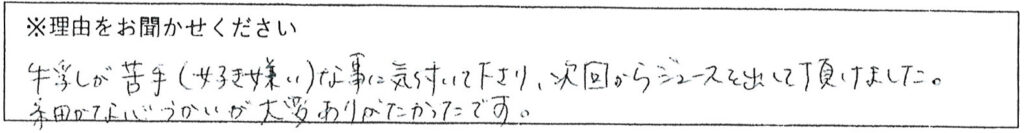 ※理由をお聞かせください
牛乳しが苦手(好き嫌い)な事に気付いて下さり、次回からジュースを出して頂けました。
細かな心づかいが大変ありがたかったです。